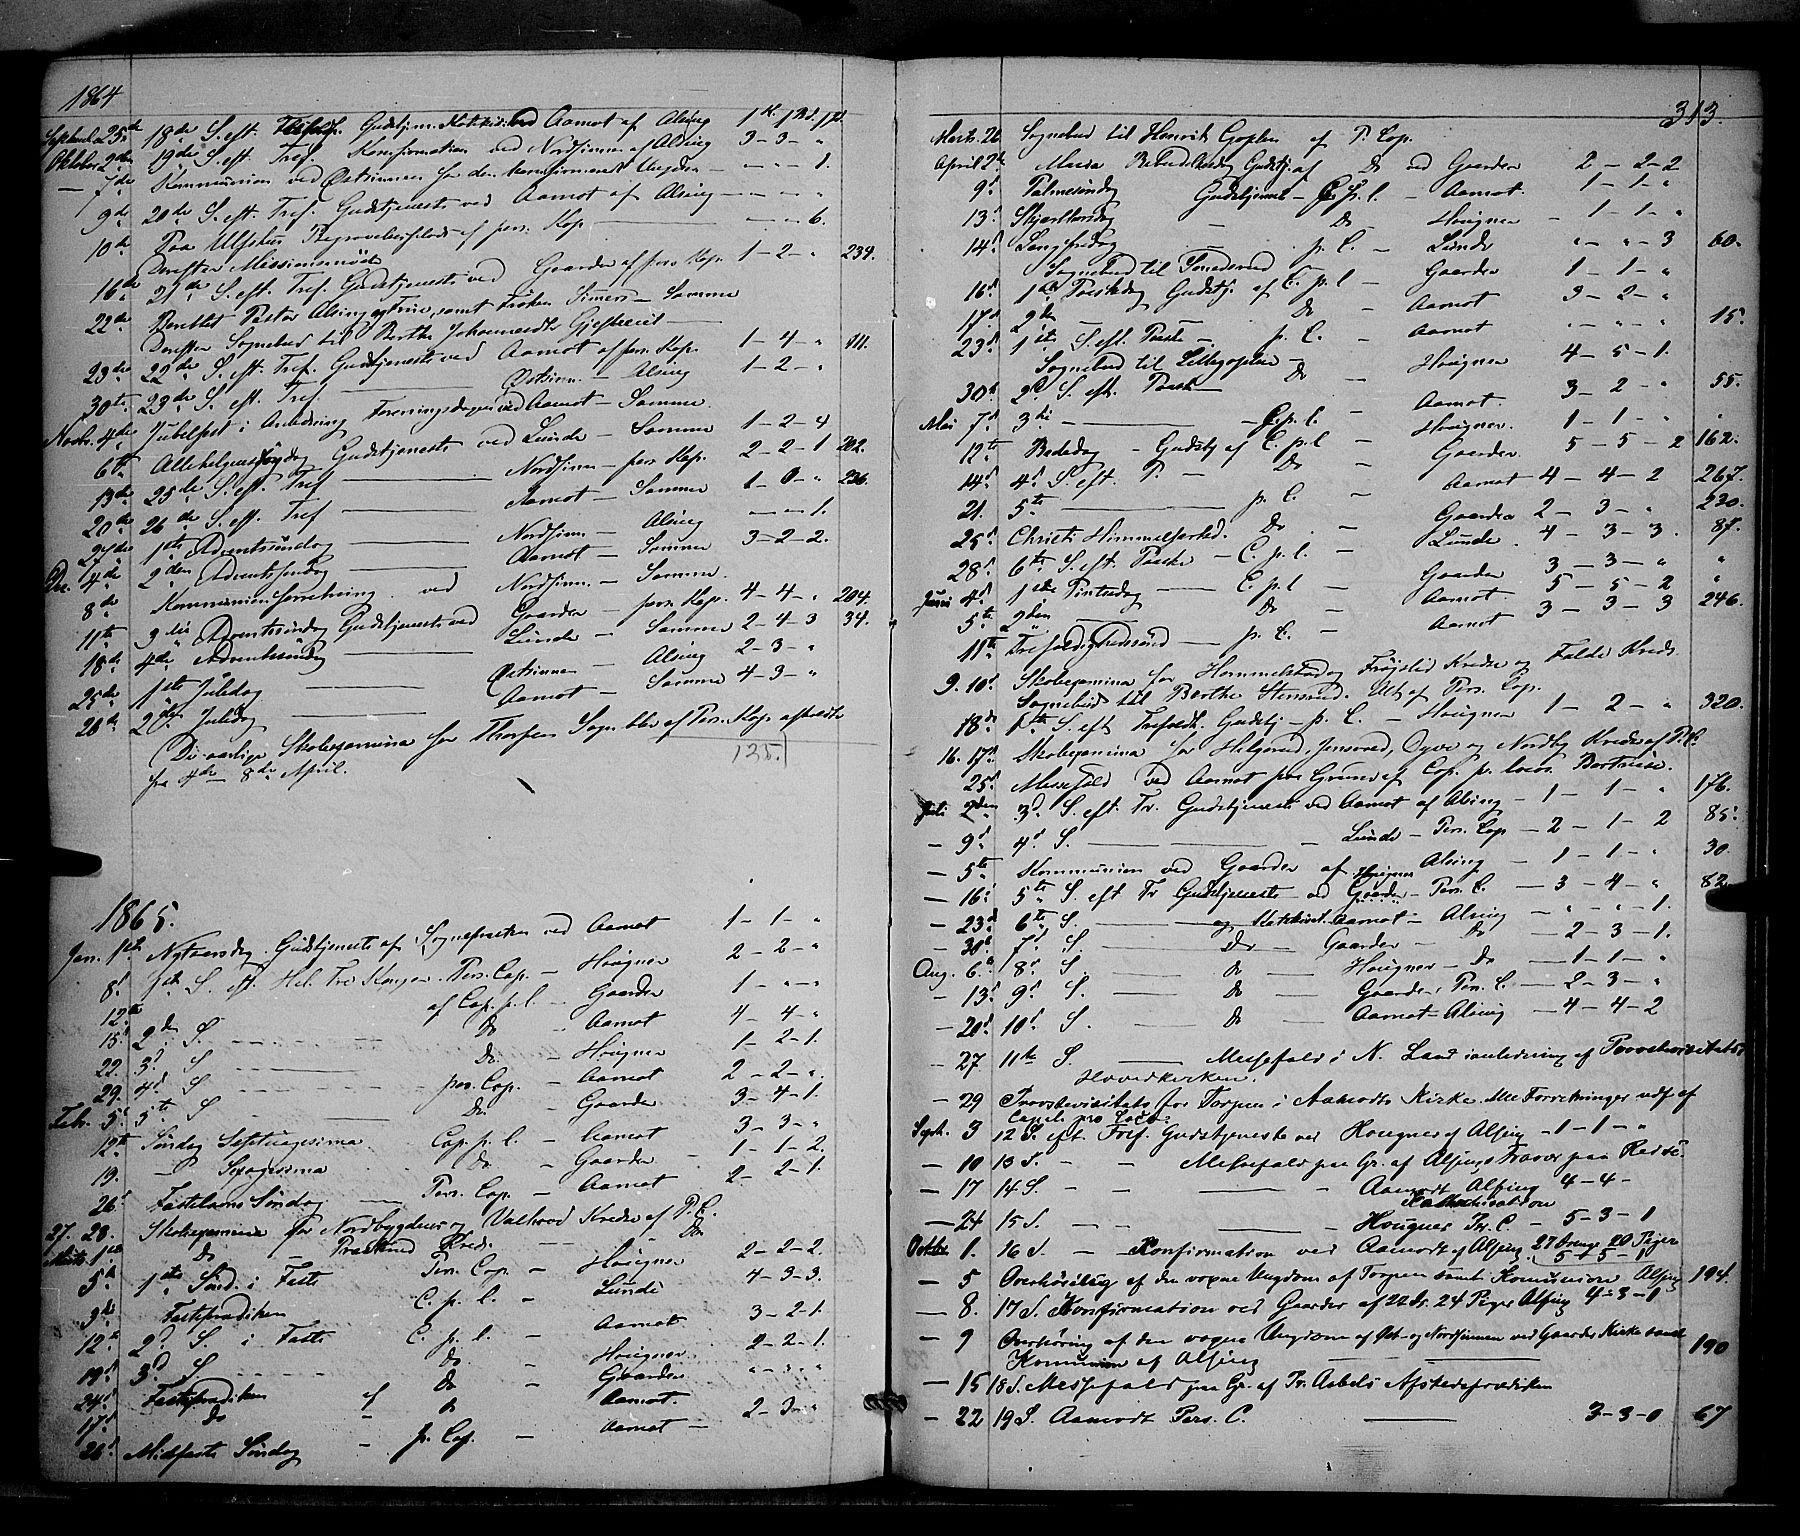 1864
Septemb. 25de 18de S. eft. Trefoldh. Gudstjen. Katekis. ved Aamot af Alsing 1 Sk. 1 Bd. 1 Pd.
Oktober 2den 19de S. eft. Tref. Konfirmation ved Nordsinnen af Alsing 3 - 3 - "
— 7de Kommunion ved Østsinnen for den konfirmerede Ungdom - - - 1.
9de 20de S. eft. Tref. Gudstjeneste ved Aamot af Alsing - - -
10de Paa Ulfshus Begravelsesplads af pers. Kap. - - 6.
Derefter Missionsmøde
16de 21de S. eft. Tref. Gudstjeneste ved Gaarder af pers. Kap. 1 - 2 - " 239.
22de Berettet Pastor Alsing og Frue, samt Frøken Simers - Samme
Derefter Sognebud til Berthe Johannesdtr.
23de 22de S. eft. Tref. Gudstjeneste ved Aamot af pers. Kap. 1 - 4 - " 111.
30te 23de S. eft. Tref. Østsinn. - Alsing 1 - 2 - "
Novbr. 4de Jubelfest i Anledning Foreningsdagen ved Aamot - Samme.
6te Allehelgensdag Gudstjeneste ved Lunde - Samme 1 - 2 - 4
13de 25de S. eft. Tref. Nordsinn. - pers. Kap. 2 - 2 - 1 202.
20de 26de S. eft. Tref. Aamot - Samme 1 - 0 - " 236.
27de 1ste Adventssøndag Nordsinn. - Alsing - - 1.
Dec. 4de 2den Adventssøndag Aamot - Samme 3 - 2 - 2.
8de Kommunionsforretning ved Nordsinn. - Samme.
11te 3die Adventssøndag Gudstjeneste ved Gaarder - pers. Kap. 4 - 4 - " 204.
18de 4de Adventssøndag Lunde - Samme 2 - 4 - 3 34.
25de 1ste Juledag Østsinnen - Alsing 2 - 3 - "
26de 2den Juledag Aamot - Samme 4 - 3 - "
De aarlige Skoleexamina for Thorpen Sogn blev af Pers. Kap. afholdte
fra 4de - 8de April.
125.
1865.
Jan. 1ste Nytaarsdag Gudstjeneste af Sognepræsten ved Aamot 1 - 1 - "
8de 1ste S. eft. Hel. Tre Konger. Pers. Cap. - Hougner 2 - 2 - "
12te af Cap. p. l. - Gaarder 1 - " - "
15de 2den S. Do - Aamot 4 - 4 - "
22. 3d. S. Do - Hougner 1 - 2 - 1.
29. 4d. S. pers. Cap. - Aamot 2 - 2 - ".
Febr. 5te 5te S. Do - Gaarder 3 - 4 - 1.
12te Søndag Septuagesima Cap. p. l. - Aamot 3 - 3 - "
19. — Sexagesima Do - Gaarder - 1 - 1 - 2.
26de Fastelavns Søndag Pers. Cap. - Aamot 2 - 2 - 1.
27. 28. Skoleexamina for Nordbygdens og Valhovd Kredse af P. C.
Marts 1ste do - Præstlund Kreds Do
5te 1ste Sønd. i Faste Pers. Cap. - Hougner 2 - 2 - 2.
3de Fasteprædiken C. p. l. - Lunde 4 - 3 - 3.
12te 2d. S. i Faste C. p. l. - Aamot 3 - 2 - 1.
19de 3d. S. Do - Hougner 2 - 2 - 1.
24de Fasteprædiken af Do Gaarder " - 3 - "
17de Do - Do Aamot.
26de Midfaste Søndag - p. Cap. - Aamot - 2 - 3 - "
313.
Marts 26 Sognebud til Henrik Goplen af P. Cap.
April 2de Mariæ Bebudelsesdag Gudstj. af Do ved Gaarder 2 - 2 - 2
9de Palmesøndag Gudstjeneste - C. p. l. - Aamot. 1 - 1 - "
13de Skjærthorsdag - Do - Hougner - 1 - 1 - "
14de Langfredag - p. C. - Lunde " - " - 3 60.
Sognebud til Smedsrud
16de 1ste Paaskedag Gudstj. af C. p. l - Gaarder 1 - 1 - "
17de 2den Do - Aamot 3 - 2 - "
23de 1ste S. eft. Paaske - p. C. - Aamot " - " - " 15.
Sognebud til Lillegoplen -
30de 2d. S. eft. Paaske - Do - Hougner 4 - 5 - 1.
Mai 7de 3die - C. p. l. - Aamot. 3 - 2 - " 55.
12te Bededag - Gudstj. af C. p. l - Hougner. 1 - 1 - "
14de 4de S. eft. P. - Do - Gaarder. 5 - 5 - 2 162.
21. 5te - p. C. - Aamot 4 - 4 - 2 267.
25de Christi Himmelfartsd. Do - Gaarder 2 - 3 - " 230.
28de 6te S. eft. Paaske - C. p. l. - Lunde. 4 - 3 - 3. 87.
Juni 4de 1ste Pintsedag - C. p. l - Gaarder 3 - 3 - " "
5te 2den Do - Aamot. 5 - 5 - 2 "
11te Trefoldighedssønd. - p. C. - Aamot 3 - 3 - 3 246.
9. 10de Skoleexamina for Hammelstad og Frøjslie Kredse og Falde Kreds.
Sognebud til Berthe Stensrud. Alt af Pers. Cap.
18de 1ste S. eft. Trefoldh. Gudstj. - p. C. - Hougner 1 - 2 - " 320.
16. 17de Skoleexamina for Helgerud, Jensvold, Ogve og Nordby Kredse af P. C.
25de Messefald ved Aamot paa Grund af Cap. p. loco
Juli 2den 3d. S. eft. Tr. Gudstjeneste ved Aamot af Alsing - 1 - 1 - " 176.
— 9de 4de S. Lunde - Pers. Cap. - 2 - 1 - 2 85.
— 5te Kommunion ved Gaarder af Alsing - 1 - 1 - " 30.
— 16de 5te S. eft. Tr. Gudstjeneste ved Gaarder Hougner - Pers. C. - 3 - 4 - " 82.
— 23de 6te S. og Katekisat. Aamot - Alsing - " - " - 1.
— 30de 7de S. Do Gaarder - Do - 2 - 3 - 1.
Aug. 6te 8de S. Do Hougner - Do - 1 - 1 - "
— 13de 9de S. Do Gaarder, Pers. C. - 2 - 3 - "
— 20de 10de S. Do Aamot - Alsing - 4 - 4 - 2
— 27 11te S. Messefald i N. Land i anledning af Provstevisitats i
Hovedkirken.
— 29 Provstevisitats for Torpen i Aamodts Kirke. Alle Forretninger udf. af
Capel. pro Loco.
Septb. 3 12 S. eft. Tref. Gudstjeneste ved Hougner af Alsing - 1 - 1 - "
— 10 13 S. - - Messefald paa Gr. af Alsings Fravær paa Reise.
— 17 14 S. - - Aamodt Alsing 4 - 4 -
Katekisation
— 24 15 S. - - Hougner Pr. C. - 5 - 3 - 1
Octbr. 1. 16 S. - Konfirmation ved Aamodt af Alsing 27 Drenge 20 Piger
5 - 5 - 1
— 5 Overhøring af den voxne Ungdom af Torpen samt Komunion Alsing 194.
— 8. 17 S. Konfirmation ved Gaarder af 22 Dr. 24 Piger Alsing 4 - 3 - 1
— 9 Overhøring af den voxne Ungdom af Øst- og Nordsinnen ved Gaarder Kirke samt
Komunion af Alsing 190
— 15 18 S. Messefald paa Gr. af Pr. Asbels Afskedsprædiken
— 22 19 S. Aamodt Pers. C. 3 - 3 - 0 67